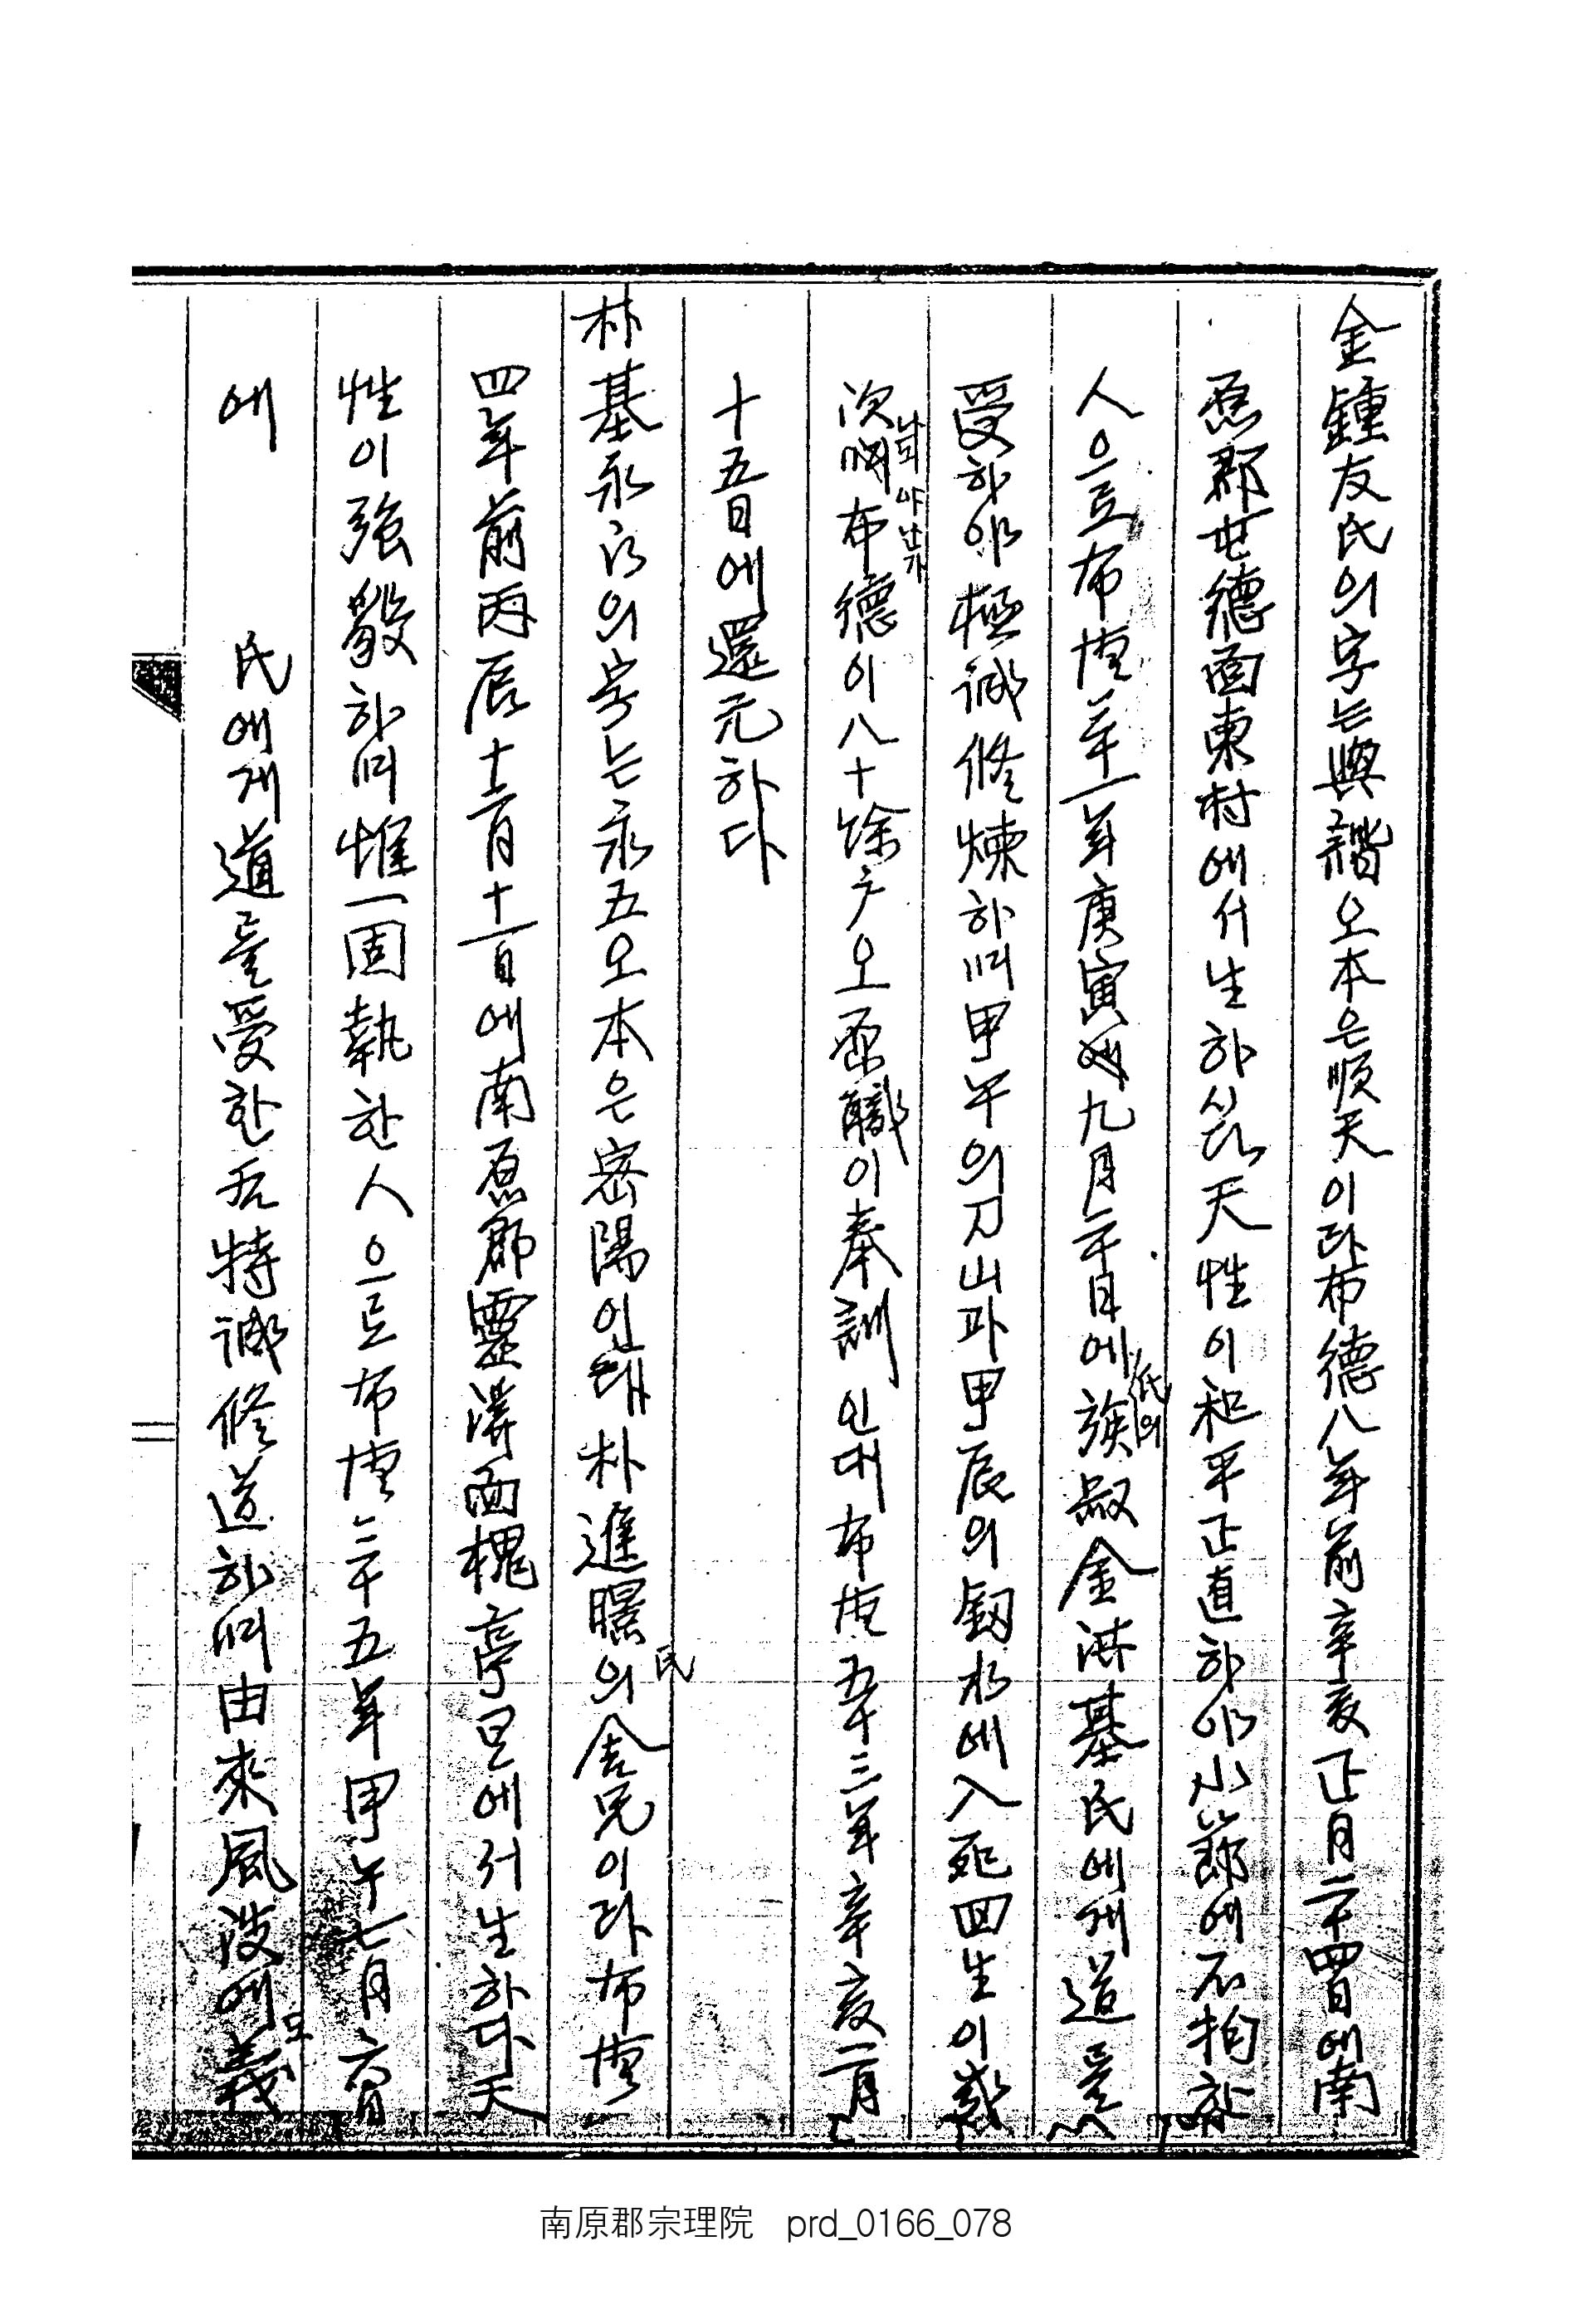 金鍾友氏의字는興諧오本은順天이라布德八年前辛亥正月二十四日에南
原郡巳德面東村에서生하시다天性이和平正直하야小節에不拘하난
人으로布德三十一年庚寅九月二十日에氏의族叔金洪基氏에게道를
受하야極誠修煉하며甲午의刀山과甲辰의釰水에入死回生이幾
次
布德이八十餘戶오原職이奉訓인대布德五十三年辛亥二月
十五日에還元하다
朴基永氏의字는永五오本은密陽인대朴進暻氏의舍兄이라布德
四年前丙辰十二月十一日에南原郡靈溪面槐亭里에서生하다天
性이強毅하며惟一固執한人으로布德三十五年甲午七月六日
에 氏에게道를受한后特誠修道하며由來風波에도義
南原郡宗理院 prd_0166_078